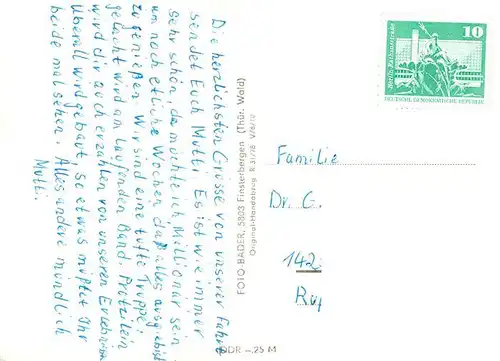 Die herzlichsten Grüsse von unserer Fahrt
sendet Euch Mutti. Es ist wie immer
sehr schön, da möchte ich Millionär sein
um noch etliche Wochen das alles ausgiebig
zu genießen. Wir sind eine tufte Truppe,
gelacht wird am laufenden Band. Protzlein
wird dir auch erzählen von unseren Erlebnissen
Überall wird gebaut so etwas müßtet Ihr
beide mal sehen. Alles andere mündlich
Mutti.
FOTO-BADER, 5803 Finsterbergen (Thür. Wald)
Original-Handabzug R 31/78 V/6/10
DDR –,25 M
10
Berlin, Rathausstraße
DEUTSCHE DEMOKRATISCHE REPUBLIK
Familie
Dr. G.
142